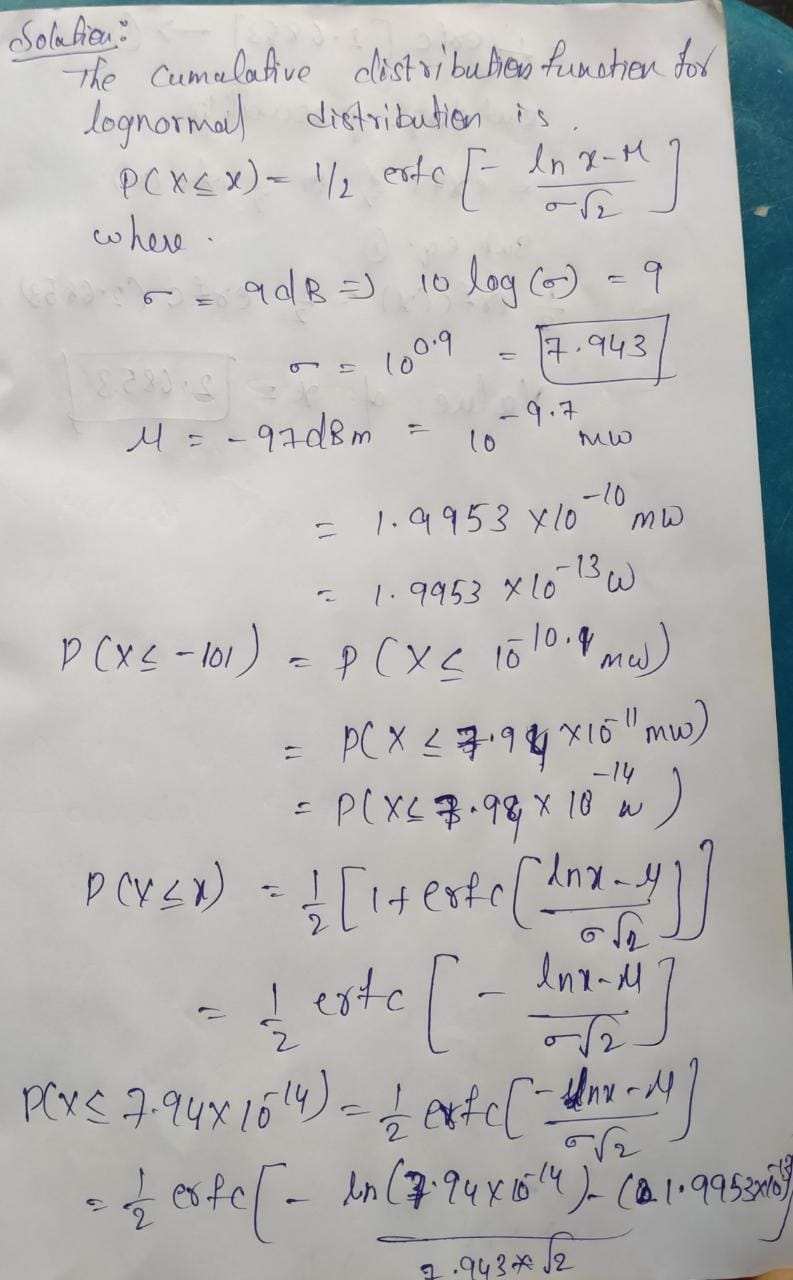 Solution:
The cumulative distribution function for
lognormal distribution is.
P(X≤x) = 1/2 erfc [- (ln x-M)/(σ√2)]
where.
σ = 9dB => 10 log(σ) = 9
σ = 10^0.9 = 7.943
M = -97dBm = 10^-9.7 mW
= 1.9953 x10^-10 mW
= 1.9953 x10^-13 W
P(X≤-101) = P(X≤ 10^-10.1 mW)
= P(X ≤ 7.94 x10^-11 mW)
= P(X≤ 7.94 x 10^-14 W)
P(X≤x) = 1/2 [1+erfc[(lnx-M)/(σ√2)]]
= 1/2 erfc [- (lnx-M)/(σ√2)]
P(X≤ 7.94x10^-14) = 1/2 erfc[-(lnx-M)/(σ√2)]
= 1/2 erfc[- (ln(7.94x10^-14)-(1.9953x10^-13))/(7.943*√2)]